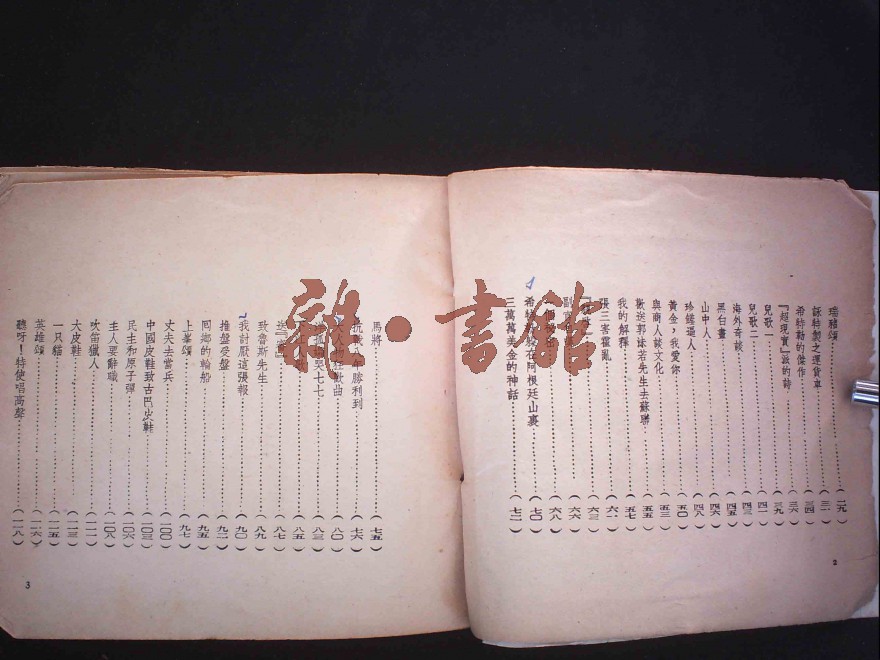 瑞雅頌………(二九)
詠特製之運貨車………(三一)
希特勒的傑作………(三四)
『超現實』派的詩………(三六)
兒歌一………(三九)
兒歌二………(四一)
海外奇談………(四三)
黑白畫………(四五)
山中人………(四六)
珍鎚逼人………(四八)
黃金，我愛你………(五〇)
與商人談文化………(五三)
歡送郭沫若先生去蘇聯………(五五)
我的解釋………(五七)
張三害霍亂………(六一)
………(六三)
副官………(六六)
一個秘密………(六八)
希特………在阿根廷山裏………(七〇)
三萬萬美金的神話………(七二)
2
馬將………(七五)
抗戰八年勝利到………(七六)
大人物狂歡曲………(八〇)
哭七七………(八三)
………(八五)
送………(八七)
致魯斯先生………(八九)
我討厭這張報………(九〇)
推盤受盤………(九二)
回鄉的輪船………(九五)
上峯頌………(九七)
丈夫去當兵………(一〇〇)
中國皮鞋致古巴火鞋………(一〇三)
民主和原子彈………(一〇六)
主人要辭職………(一〇八)
吹笛獵人………(一一一)
大皮鞋………(一一三)
一只貓………(一一五)
英雄頌………(一一六)
聽呀！特使唱高聲………(一一八)
3
龍·書館